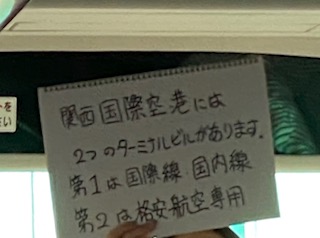 関西国際空港には
2つのターミナルビルがあります。
第1は国際線・国内線
第2は格安航空専用